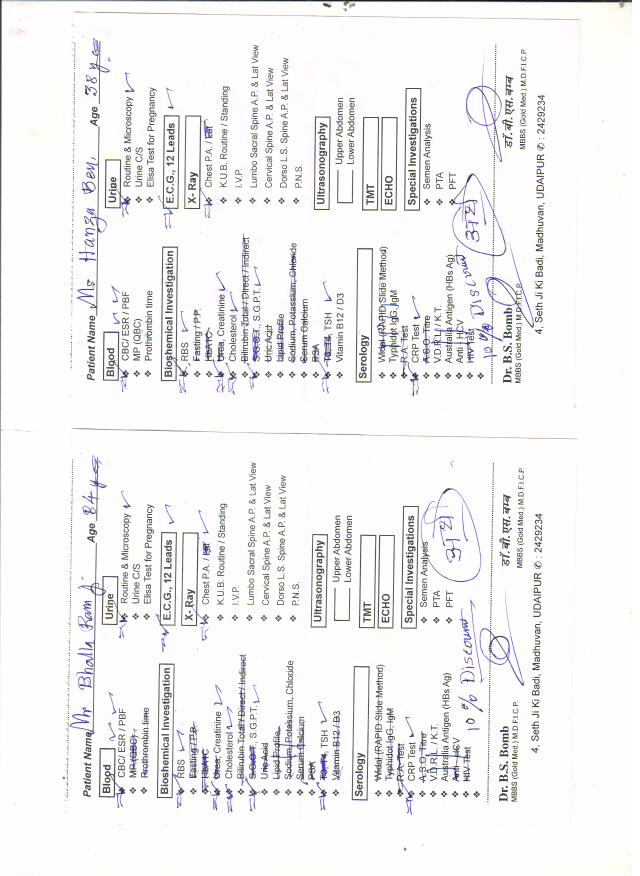 Patient Name Mr Bhalla Ram Ji Age 84 yrs
Blood
CBC/ ESR / PBF
MP (QBC)
Prothrombin time
Biochemical Investigation
RBS
Fasting / P.P.
HbA1C
Urea, Creatinine
Cholesterol
Bilirubin Total / Direct / Indirect
S.G.O.T, S.G.P.T.
Uric Acid
Lipid Profile
Sodium, Potassium, Chloride
Serum Calcium
PSA
T3, T4, TSH
Vitamin B12 / D3
Serology
Widal (RAPID Slide Method)
Typhidot IgG, IgM
R.A. Test
CRP Test
A.S.O. Titre
V.D.R.L. / K.T.
Australia Antigen (HBs Ag)
Anti HCV
HIV Test
10 % Discount
Urine
Routine & Microscopy
Urine C/S
Elisa Test for Pregnancy
E.C.G., 12 Leads
X- Ray
Chest P.A. / Lat
K.U.B. Routine / Standing
I.V.P.
Lumbo Sacral Spine A.P. & Lat View
Cervical Spine A.P. & Lat View
Dorso L.S. Spine A.P. & Lat View
P.N.S.
Ultrasonography
Upper Abdomen
Lower Abdomen
TMT
ECHO
Special Investigations
Semen Analysis
PTA
PFT
Dr. B.S. Bomb
MBBS (Gold Med.) M.D.F.I.C.P.
डॉ. बी. एस. बम्ब
MBBS (Gold Med.) M.D.F.I.C.P.
4, Seth Ji Ki Badi, Madhuvan, UDAIPUR ✆ : 2429234
Patient Name Ms Hanza Ben, Age 38 yrs
Blood
CBC/ ESR / PBF
MP (QBC)
Prothrombin time
Biochemical Investigation
RBS
Fasting / P.P.
HbA1C
Urea, Creatinine
Cholesterol
Bilirubin Total / Direct / Indirect
S.G.O.T, S.G.P.T.
Uric Acid
Lipid Profile
Sodium, Potassium, Chloride
Serum Calcium
PSA
T3, T4, TSH
Vitamin B12 / D3
Serology
Widal (RAPID Slide Method)
Typhidot IgG, IgM
R.A. Test
CRP Test
A.S.O. Titre
V.D.R.L. / K.T.
Australia Antigen (HBs Ag)
Anti HCV
HIV Test
10 % Discount
Urine
Routine & Microscopy
Urine C/S
Elisa Test for Pregnancy
E.C.G., 12 Leads
X- Ray
Chest P.A. / Lat
K.U.B. Routine / Standing
I.V.P.
Lumbo Sacral Spine A.P. & Lat View
Cervical Spine A.P. & Lat View
Dorso L.S. Spine A.P. & Lat View
P.N.S.
Ultrasonography
Upper Abdomen
Lower Abdomen
TMT
ECHO
Special Investigations
Semen Analysis
PTA
PFT
Dr. B.S. Bomb
MBBS (Gold Med.) M.D.F.I.C.P.
डॉ. बी. एस. बम्ब
MBBS (Gold Med.) M.D.F.I.C.P.
4, Seth Ji Ki Badi, Madhuvan, UDAIPUR ✆ : 2429234